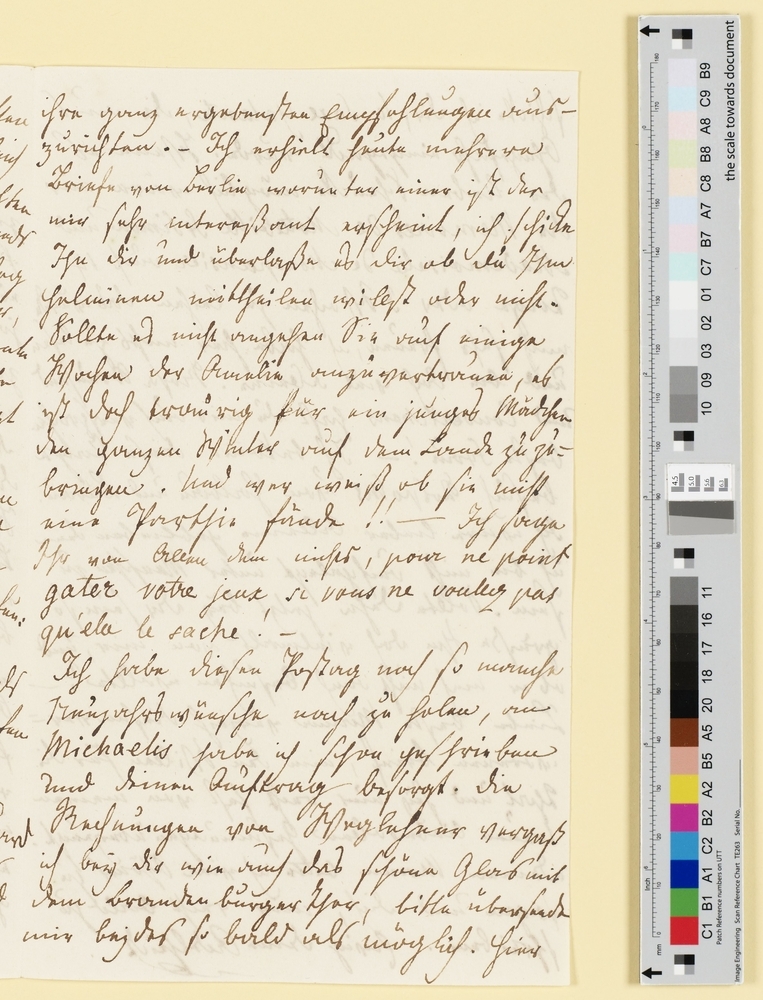 ihre ganz ergebensten Empfehlungen aus-
zurichten. – Ich erhielt heute mehrere
Briefe von Berlin worunter einer ist der
mir sehr intereßant erscheint, ich schicke
Ihn dir und überlaße es dir ob du Ihn
Helminen mittheilen willst oder nicht.
Sollte es nicht angehen Sie auf einige
Wochen der Amelie anzuvertrauen, es
ist doch traurig für ein junges Mädchen
den ganzen Winter auf dem Lande zu zu-
bringen. Und wer weiß ob sie nicht
eine Parthie fände!! — Ich sage
Ihr von Allen dem nichts, pour ne point
gater votre jeux, si vous ne voulez pas
qu'ele le sache! –
Ich habe diesen Postag noch so manche
Neujahrswünsche nach zu holen, an
Michaelis habe ich schon geschrieben
und deinen Auftrag besorgt. Die
Rechnungen von Weglehner vergaß
ich bey dir wie auch das schöne Glas mit
dem Brandenburger Thor, bitte übersende
mir beydes so bald als möglich. Hier
the scale towards document
B9
C9
A8
B8
C8
A7
B7
C7
01
02
03
09
10
11
16
17
18
20
A5
B5
A2
B2
C2
A1
B1
C1
Patch Reference numbers on UTT
Image Engineering Scan Reference Chart TE263 Serial No.
inch
mm